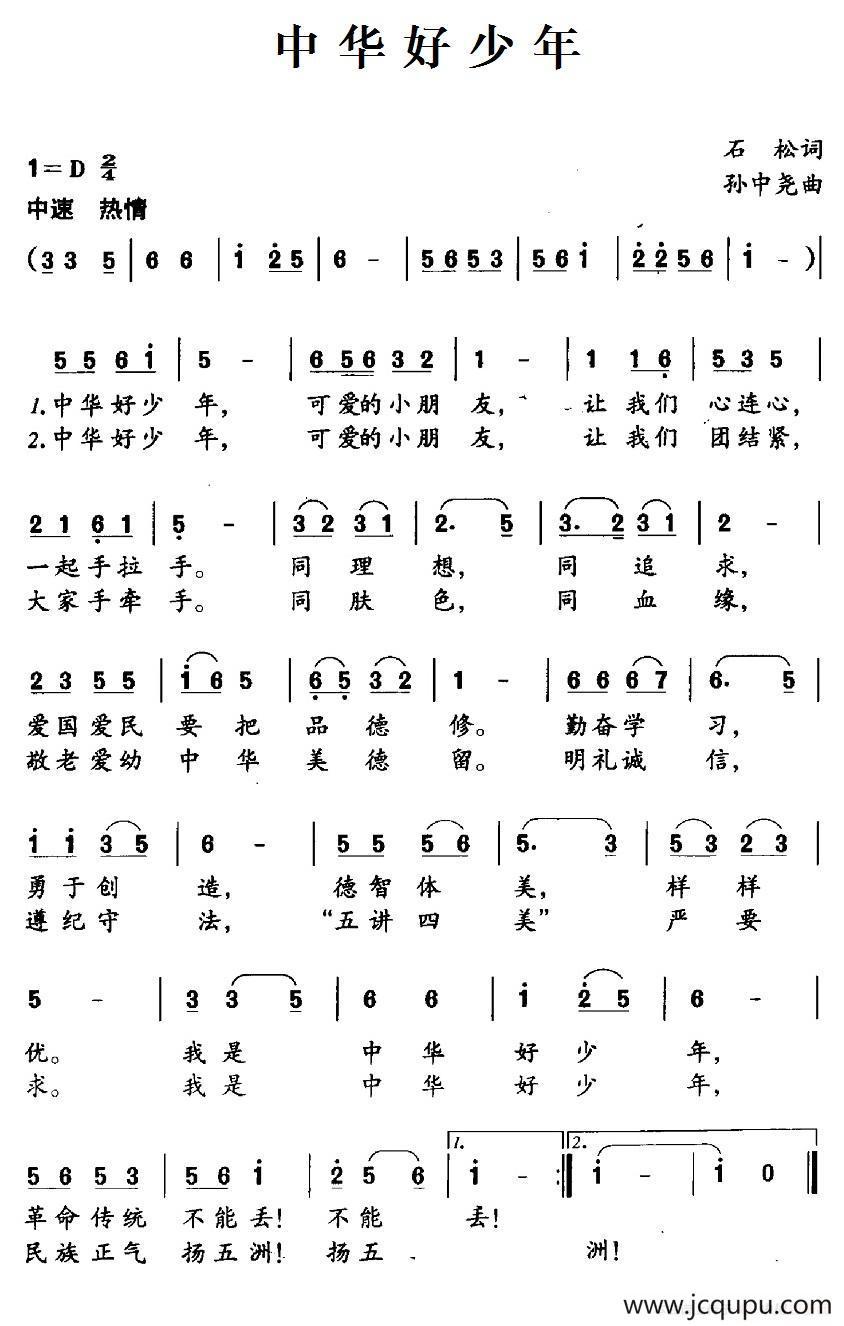 中华好少年
石 松词
1=D 2/4
孙中尧曲
中速 热情
(3 3 5 | 6 6 | i 2̇ 5 | 6 - | 5 6 5 3 | 5 6 i | 2̇ 2̇ 5 6 | i - )|
5 5 6 i | 5 - | 6 5 6 3 2 | 1 - | 1 1 6̣ | 5 3 5 |
1.中华好少 年, 可爱的小朋 友, 让我们 心连心,
2.中华好少 年, 可爱的小朋 友, 让我们 团结紧,
2 1 6̣ 1 | 5̣ - | 3 2 3 1 | 2. 5 | 3. 2 3 1 | 2 - |
一起手拉 手。 同 理 想, 同 追 求,
大家手牵 手。 同 肤 色, 同 血 缘,
2 3 5 5 | i 6 5 | 6̣ 5̣ 3 2 | 1 - | 6 6 6 7 | 6. 5 |
爱国爱民 要 把 品 德 修。 勤奋学 习,
敬老爱幼 中 华 美 德 留。 明礼诚 信,
i i 3 5 | 6 - | 5 5 5 6 | 5. 3 | 5 3 2 3 |
勇于创 造, 德智体 美, 样 样
遵纪守 法, “五讲四 美” 严 要
5 - | 3 3 5 | 6 6 | i 2̇ 5 | 6 - |
优。 我是 中 华 好 少 年,
求。 我是 中 华 好 少 年,
1. 2.
5 6 5 3 | 5 6 i | 2̇ 5 6 | i - :| i - | i 0 |
革命传统 不能丢! 不能 丢!
民族正气 扬五洲! 扬五 洲!
www.jcqupu.com